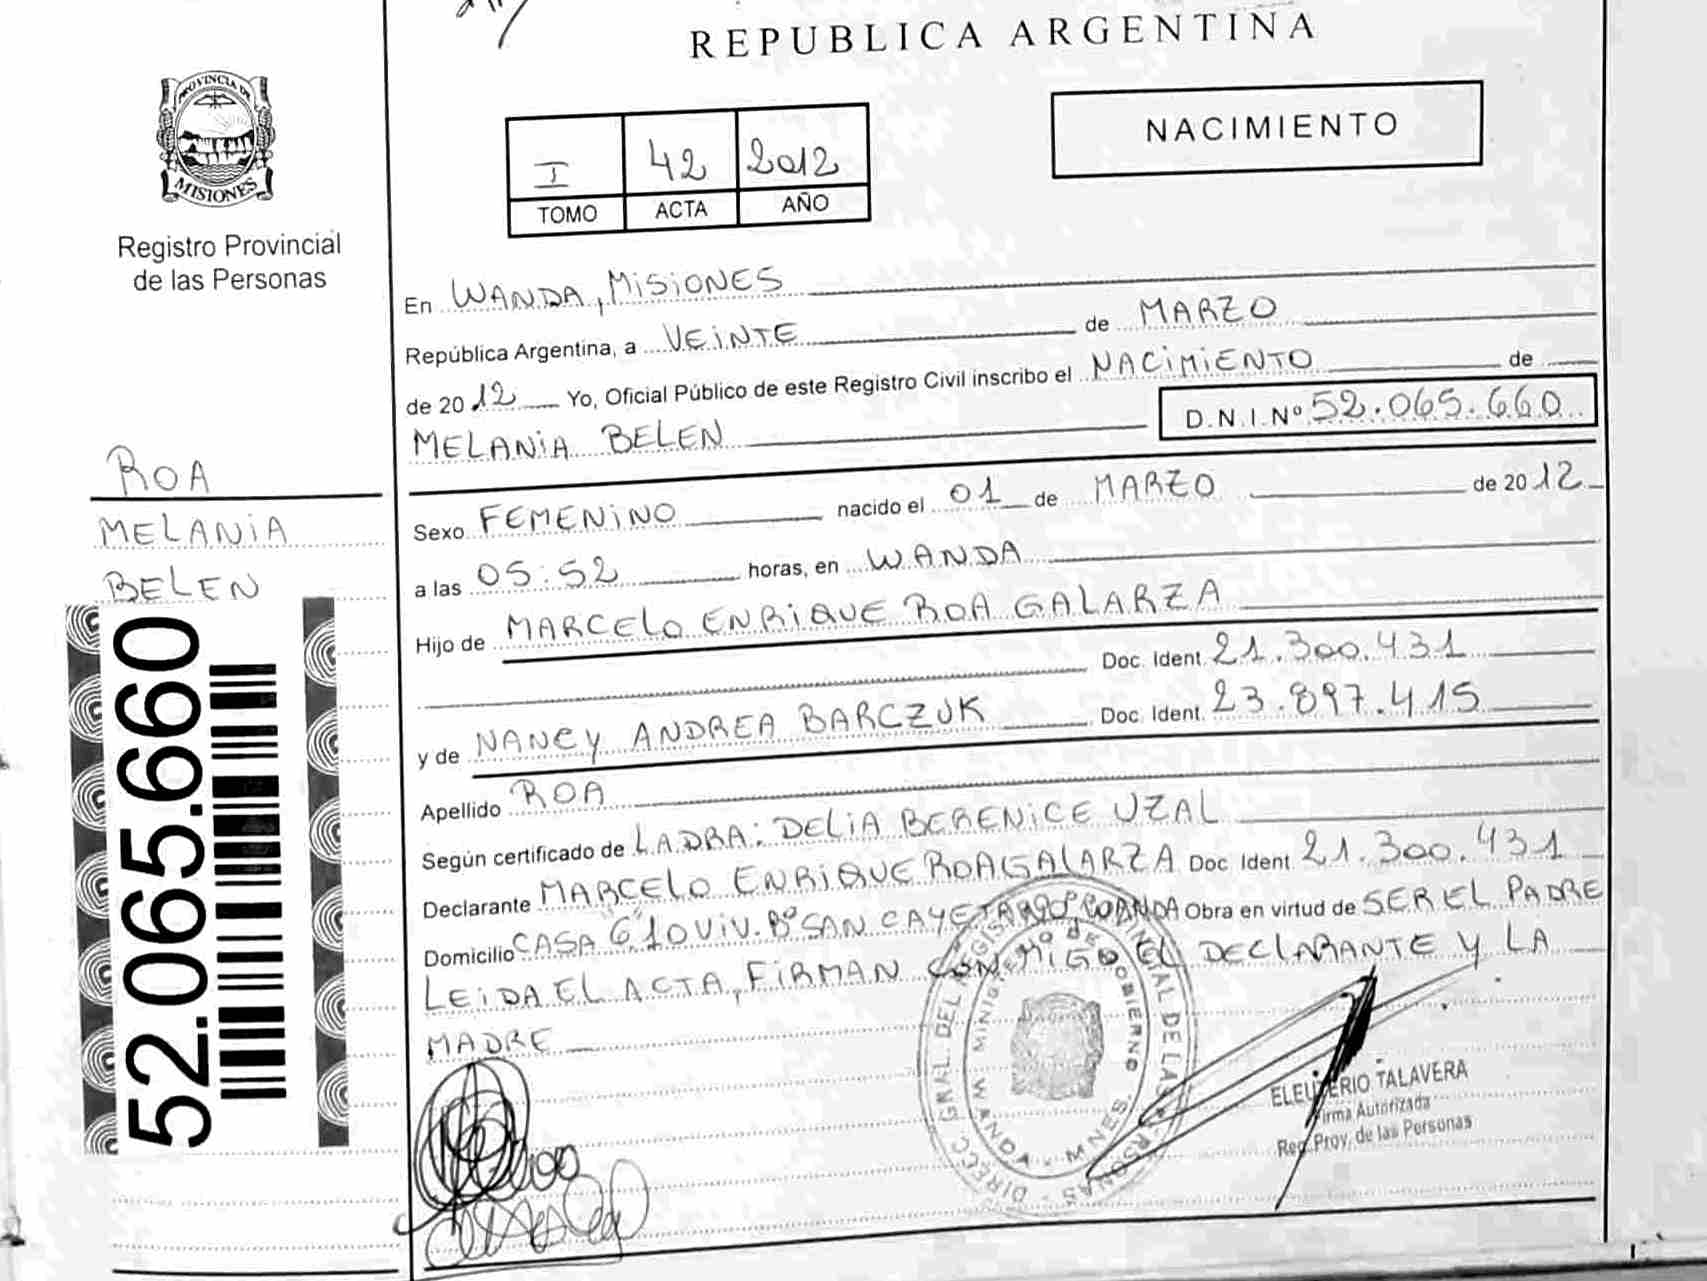 REPUBLICA ARGENTINA
PROVINCIA DE
MISIONES
Registro Provincial
de las Personas
NACIMIENTO
I 42 2012
TOMO ACTA AÑO
En WANDA, MISIONES
República Argentina, a VEINTE de MARZO
de 2012 Yo, Oficial Público de este Registro Civil inscribo el NACIMIENTO de
MELANIA BELEN D.N.I.Nº 52.065.660
Sexo FEMENINO nacido el 01 de MARZO de 2012
a las 05:52 horas, en WANDA
Hijo de MARCELO ENRIQUE ROA GALARZA
Doc. Ident. 21.300.431
y de NANCY ANDREA BARCZUK Doc. Ident. 23.897.415
Apellido ROA
Según certificado de LADRA: DELIA BERENICE UZAL
Declarante MARCELO ENRIQUE ROA GALARZA Doc Ident 21.300.431
Domicilio CASA 6 10 VIV. Bº SAN CAYETANO WANDA Obra en virtud de SER EL PADRE
LEIDA EL ACTA, FIRMAN CONMIGO EL DECLARANTE Y LA
MADRE
ROA
MELANIA
BELEN
52.065.660
DIRECC. GRAL. DEL REGISTRO PROVINCIAL DE LAS PERSONAS
MINIST° DE GOBIERNO
WANDA - MNES.
ELEUTERIO TALAVERA
Firma Autorizada
Reg. Prov. de las Personas